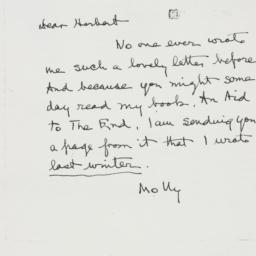 Dear Herbert
No one ever wrote
me such a lovely letter before
And because you might some
day read my book, An Aid
to The End, I am sending you
a page from it that I wrote
last winter.
Molly